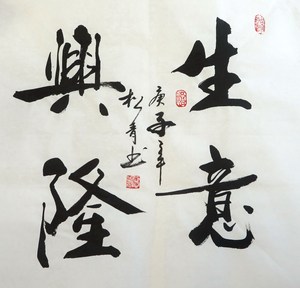 生意
興隆
庚子年
松青书